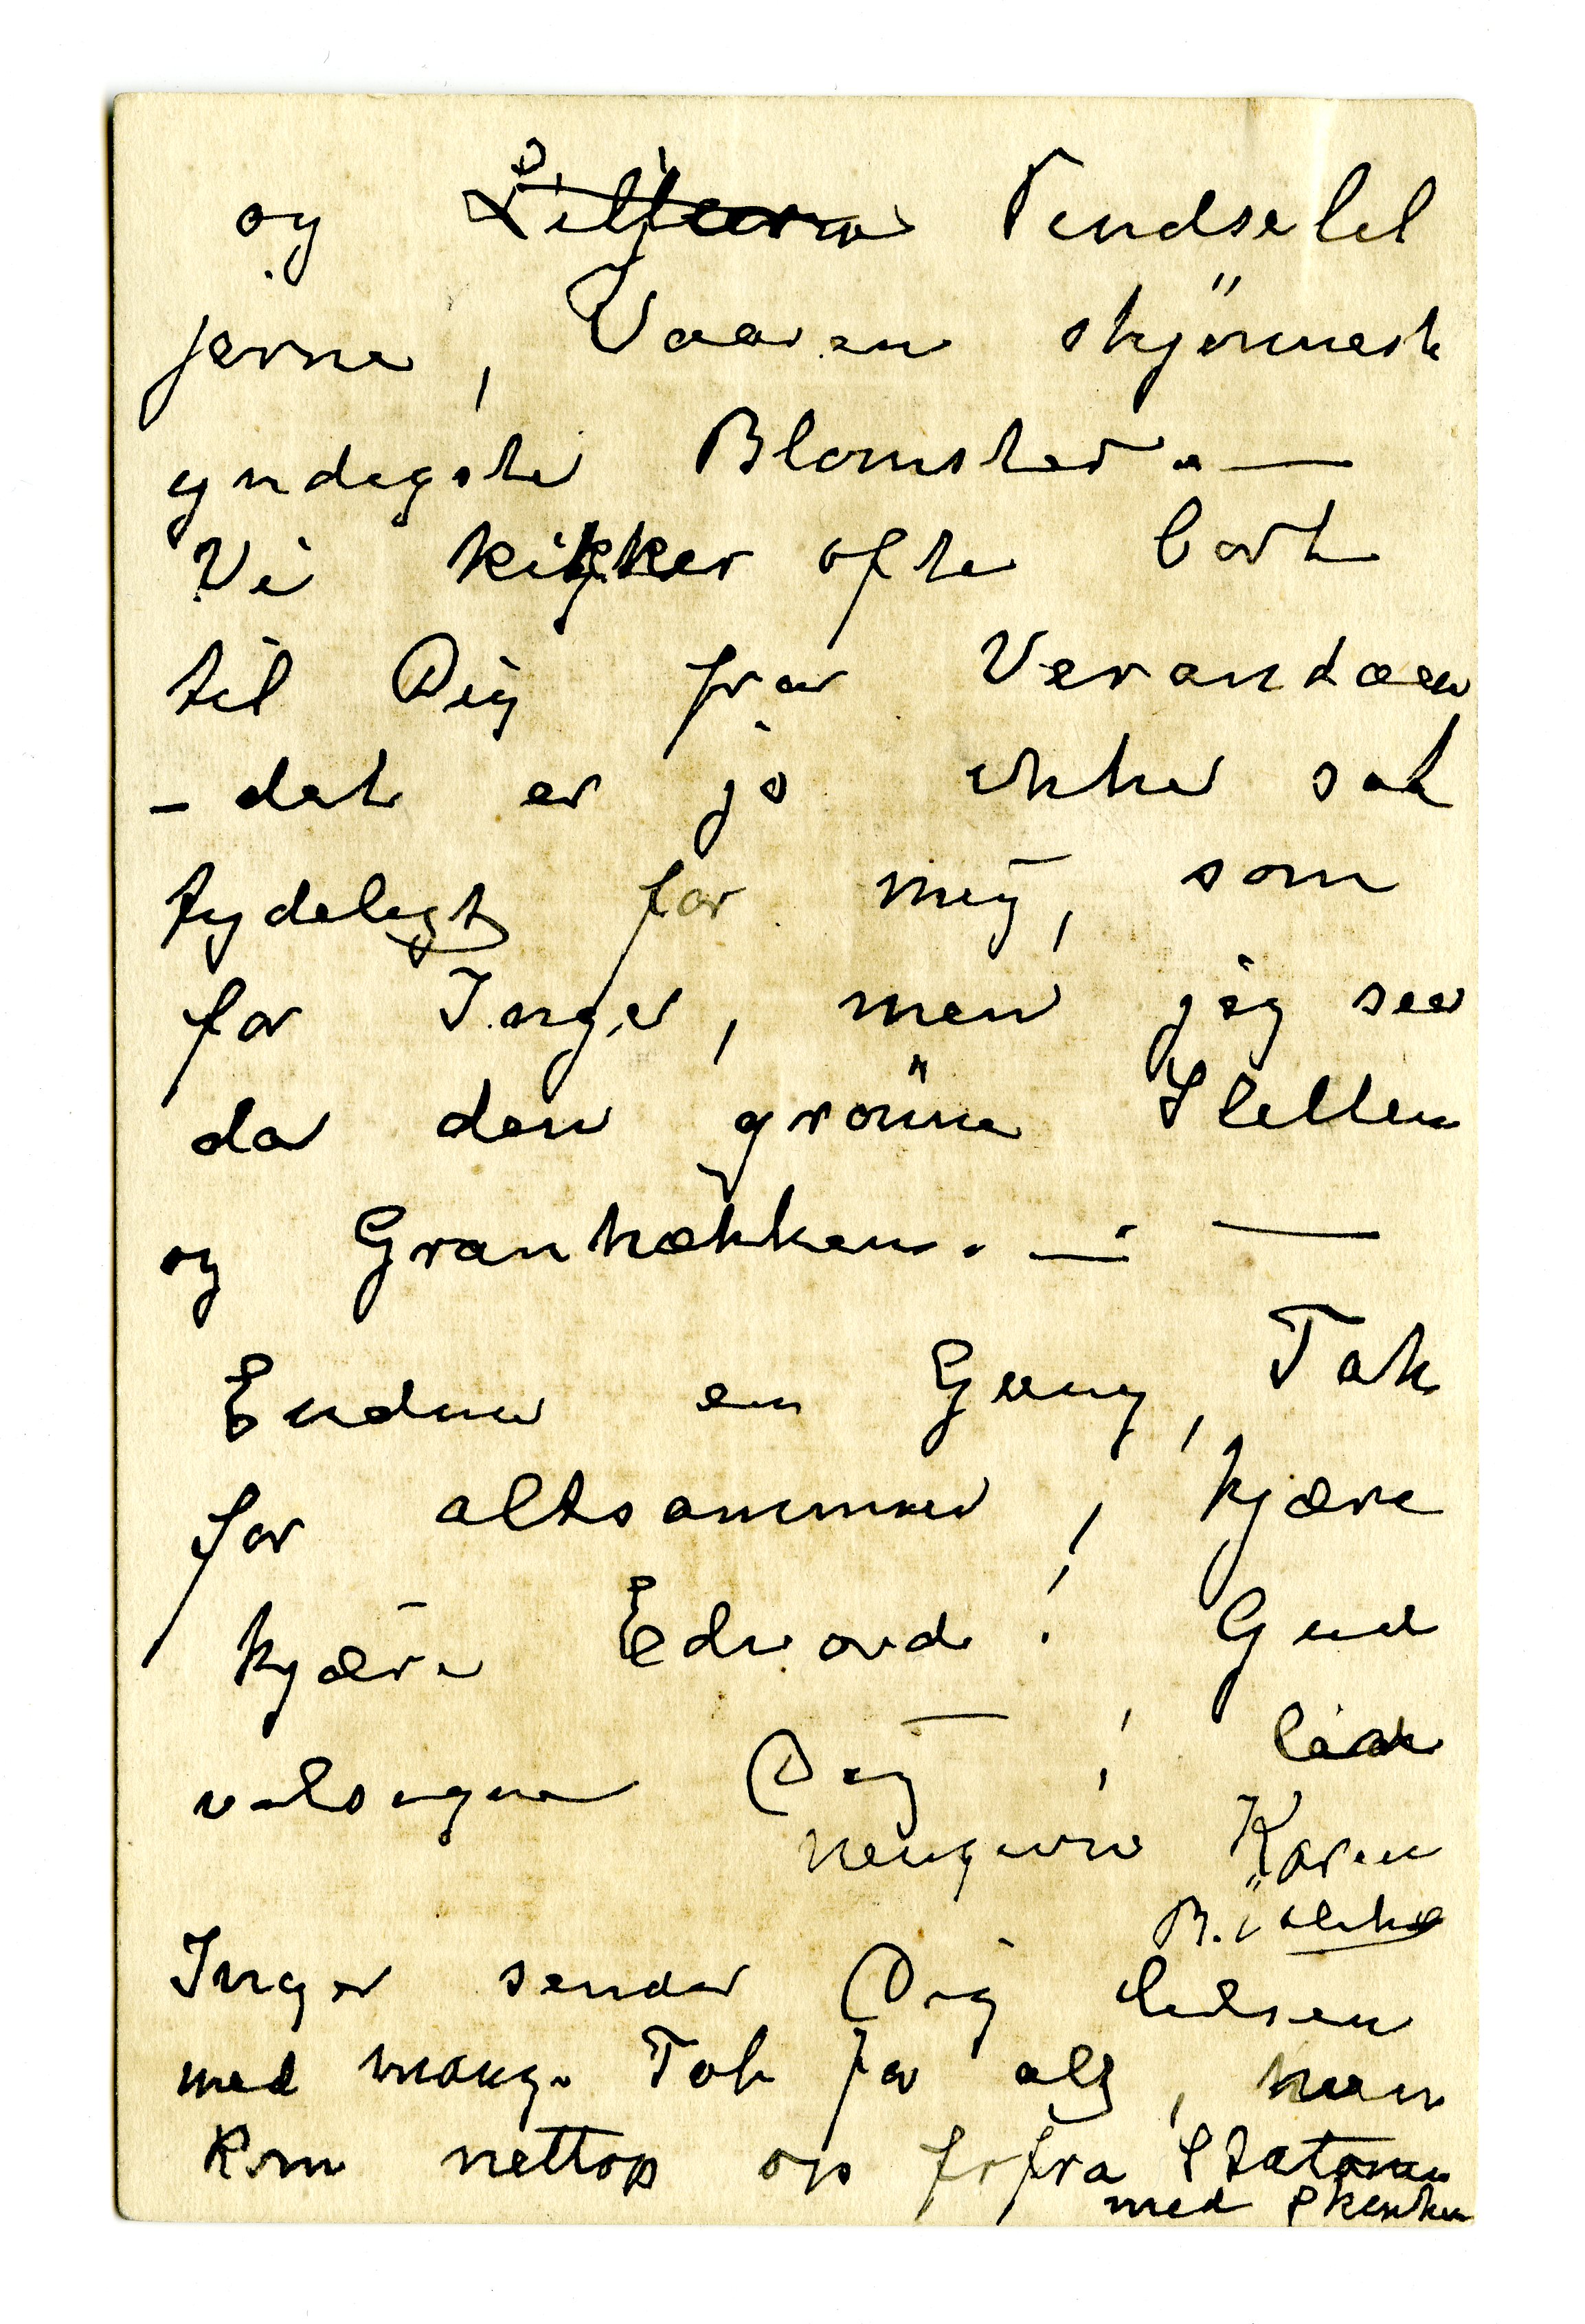 og Pindselil
jerne, Vaaren skjönneste
yndigste Blomster. —
Vi kikker ofte bort
til Dig fra Verandaen
— det er jo ikke saa
tydeligt for mig, som
for Inger, men jeg see
da den grönne Sletten
og Granhækken. — —
Endnu en Gang, Tak
for altsammen, kjære
kjære Edvard! Gud
velsigne Dig,
hengivne Karen
B.
Inger sender Dig Hilsen
med mange Tak for alt, hun
Kom nettop op fra Stationen
med